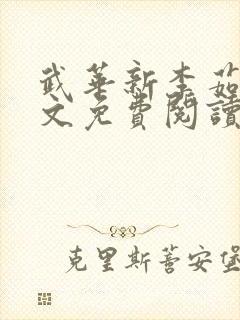 武華新李茹
文免費閱讀
克里斯蒂安堡